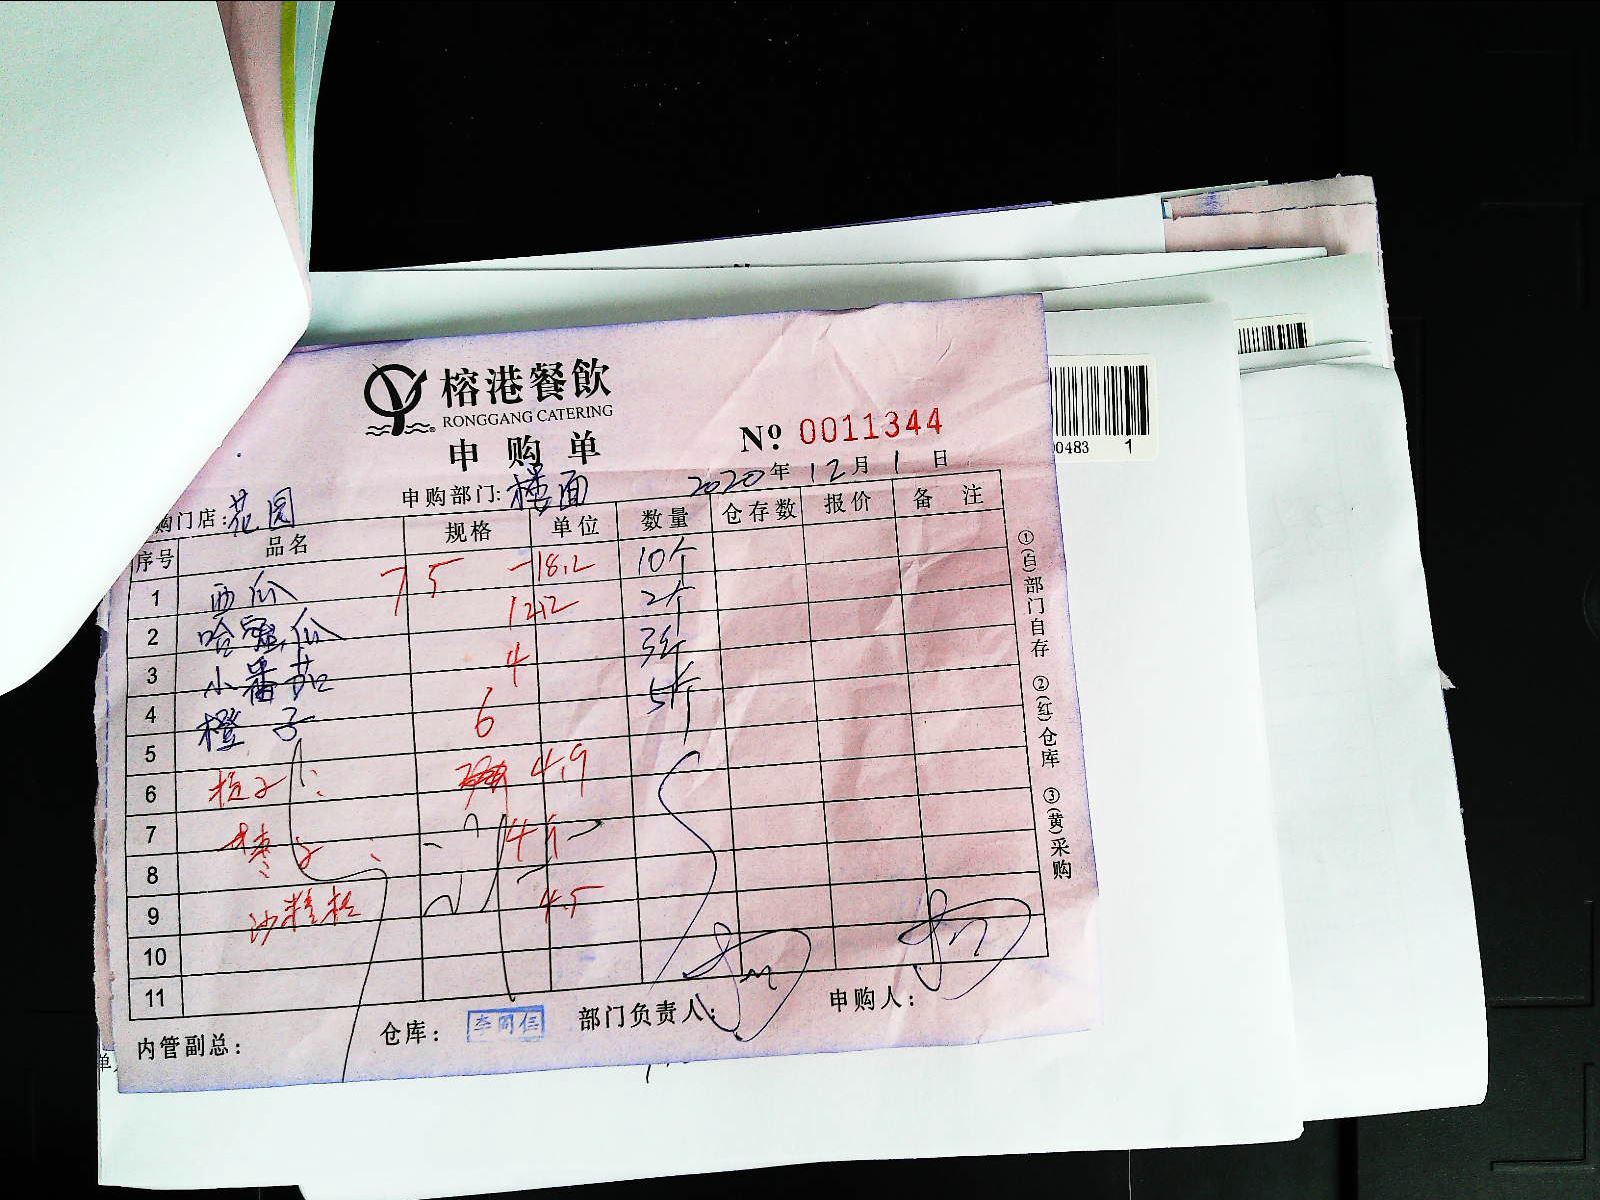 榕港餐飲
RONGGANG CATERING
申购单
№ 0011344
购门店:花园 申购部门:楼面 2020年12月1日
序号 品名 规格 单位 数量 仓存数 报价 备注
1 西瓜 75 -18.2 10个
2 哈密瓜 12.2 2个
3 小番茄 4 3斤
4 橙子 6 5个
5
6 4.9
7 枣子: 4.5
8
9 沙糖桔 4.5
10
11
内管副总: 仓库: 部门负责人: 申购人:
①(白)部门自存 ②(红)仓库 ③(黄)采购
00483 1
单